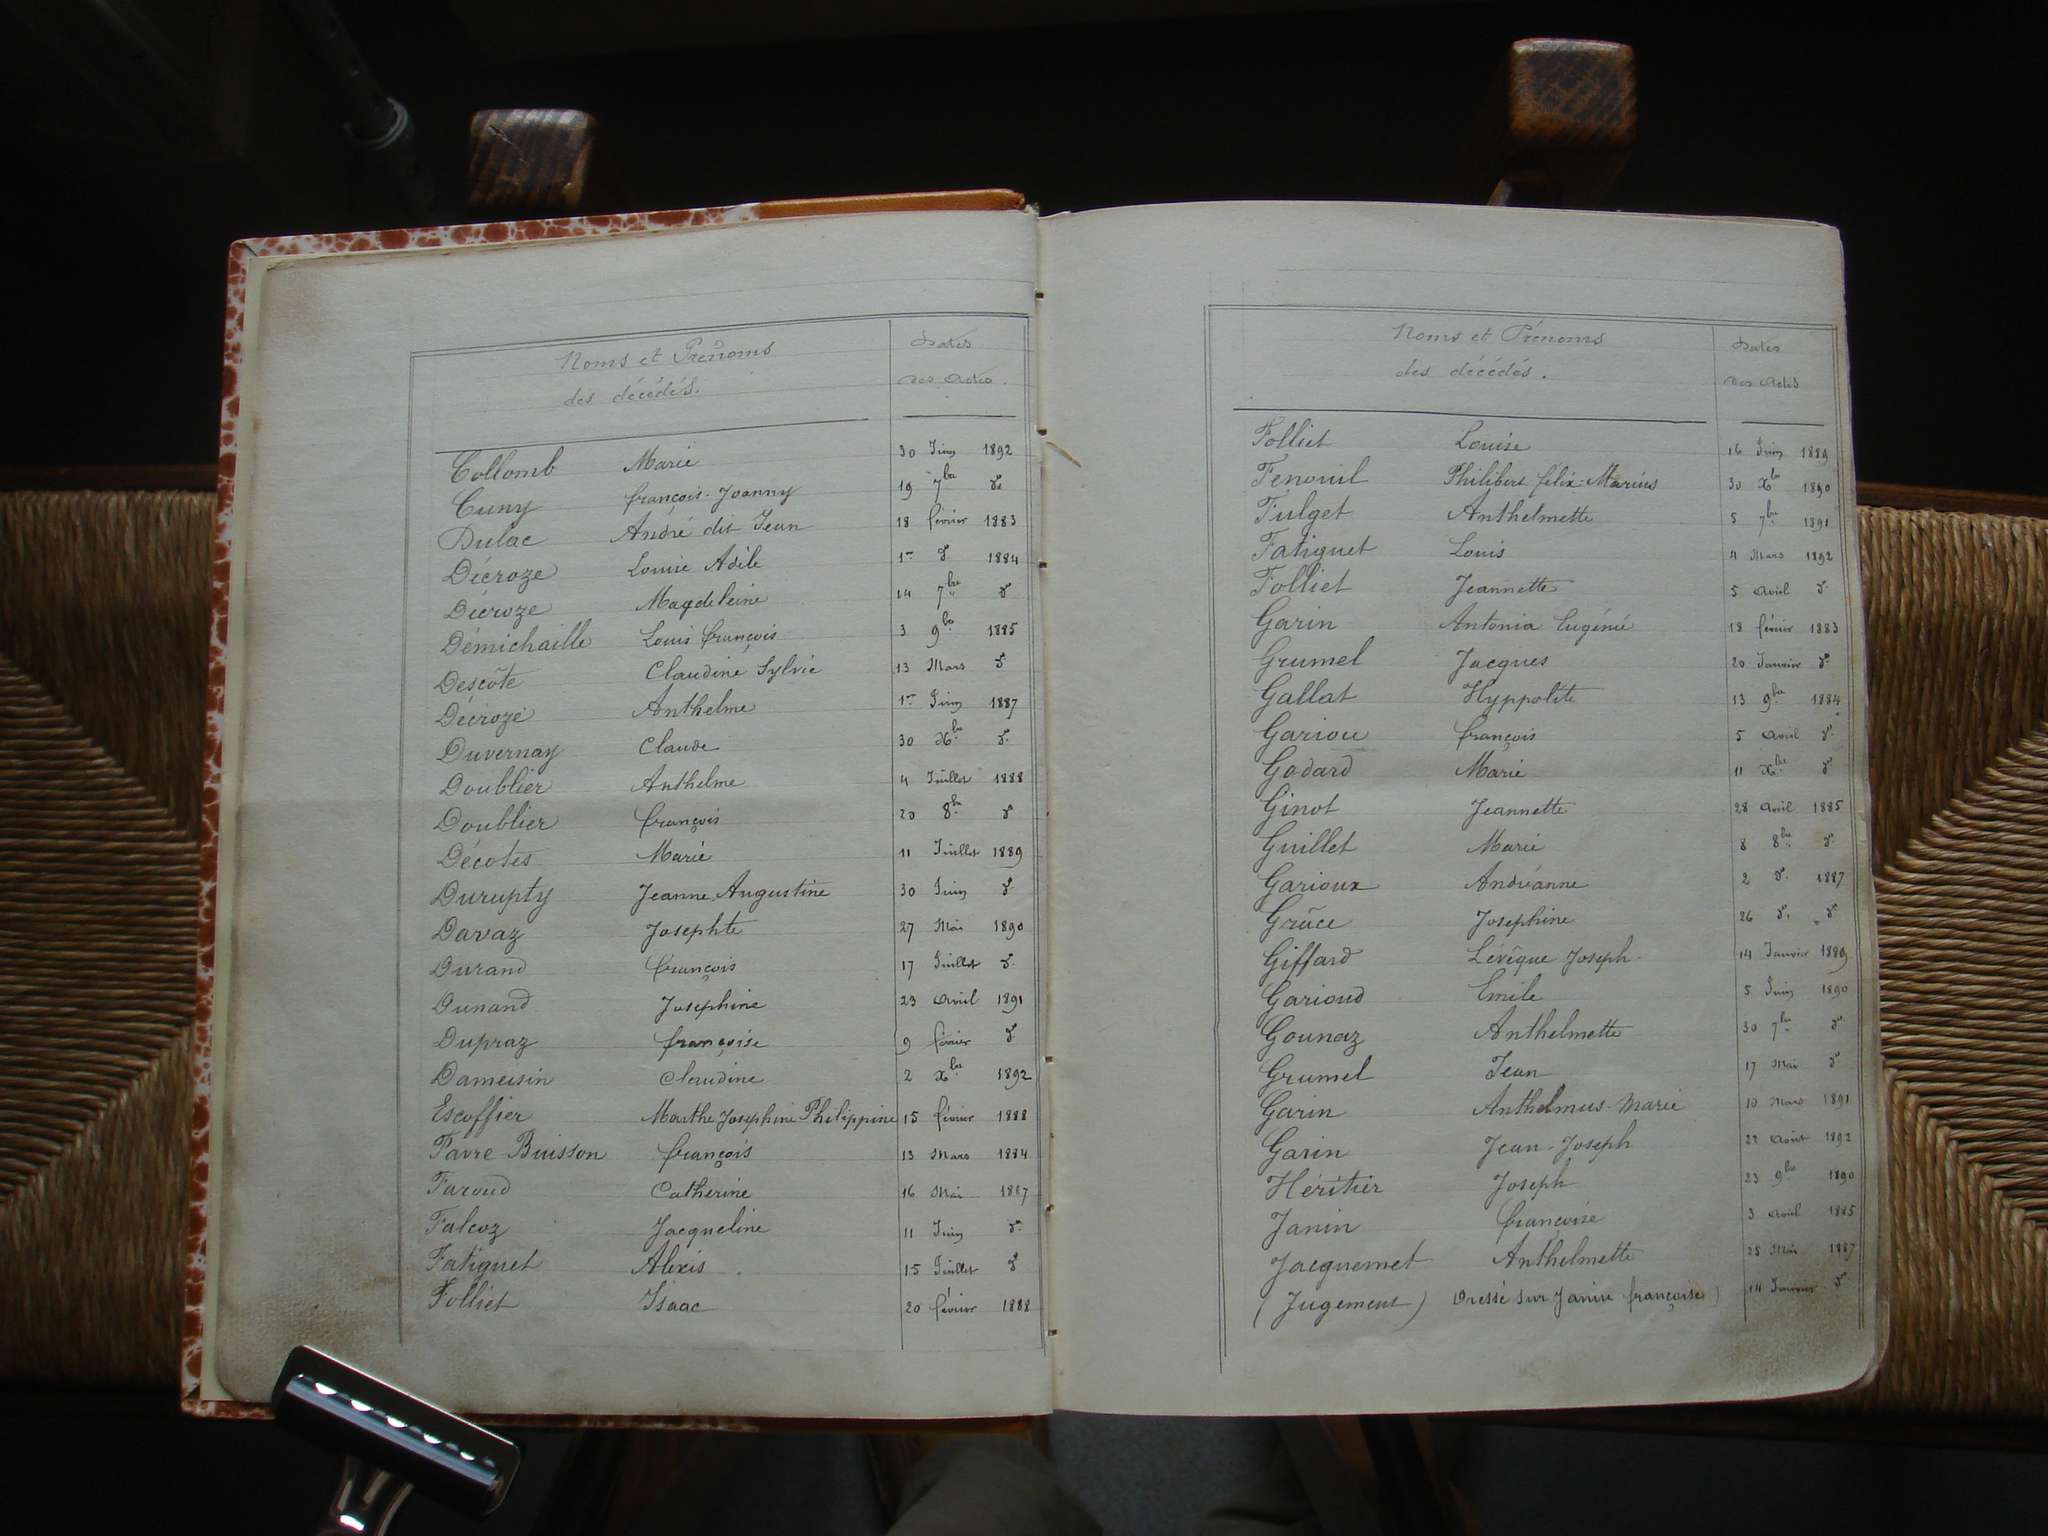 Noms et Prénoms
des décédés.
Dates
des Actes.
Collomb Marie 30 Juin 1892
Cuny françois-Joanny 19 7bre do
Dulac André dit Jean 18 février 1883
Décroze Louise Adèle 1er do 1884
Décroze Magdeleine 14 7bre do
Démichaille Louis françois 3 9bre 1885
Descôte Claudine Sylvie 13 Mars do
Décroze Anthelme 1er Juin 1887
Duvernay Claude 30 Xbre do
Doublier Anthelme 4 Juillet 1888
Doublier françois 20 8bre do
Décotes Marie 11 Juillet 1889
Durupty Jeanne Augustine 30 Juin do
Davaz Josephte 27 Mai 1890
Durand françois 17 Juillet do
Dunand Josephine 23 Avril 1891
Dupraz françoise 9 février do
Dameisin Claudine 2 Xbre 1892
Escoffier Marthe Josephine Philippine 15 février 1888
Favre Buisson françois 13 Mars 1884
Faroud Catherine 16 Mai 1887
Falcoz Jacqueline 11 Juin do
Fatiguet Alexis. 15 Juillet do
Folliet Isaac 20 février 1888
Noms et Prénoms
des décédés.
Dates
des Actes
Folliet Louise 16 Juin 1889
Fenouil Philibert félix-Marius 30 Xbre 1890
Fulget Anthelmette 5 7bre 1891
Fatiguet Louis 4 Mars 1892
Folliet Jeannette 5 Avril do
Garin Antonia Eugénie 18 février 1883
Grumel Jacques 20 Janvier do
Gallat Hyppolite 13 9bre 1884
Gariou françois 5 Avril do
Godard Marie 11 Xbre do
Ginot Jeannette 28 Avril 1885
Guillet Marie 8 8bre do
Garioux Andréanne 2 do 1887
Grâce Josephine 26 do do
Giffard Lévêque Joseph 14 Janvier 1889
Garioud Emile 5 Juin 1890
Gounaz Anthelmette 30 7bre do
Grumel Jean 17 Mai do
Garin Anthelmus-Marie 10 Mars 1891
Garin Jean-Joseph 22 Août 1892
Héritier Joseph 23 9bre 1890
Janin françoise 3 Avril 1885
Jacquemet Anthelmette 25 Mai 1887
(Jugement) Dressé sur Janin françoise) 14 Janvier do